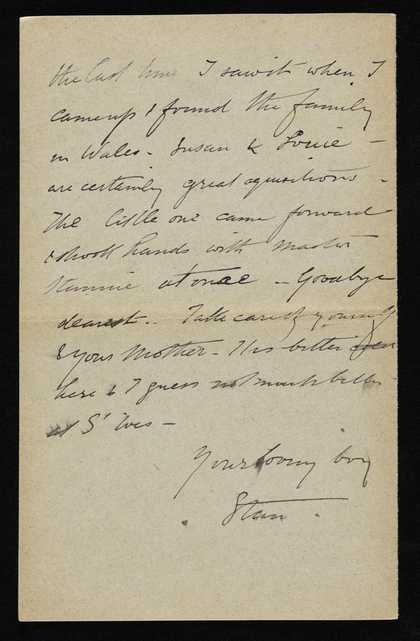 the last time I saw it when I
came up & found the family
in Wales - Susan & Louie -
are certainly great aquisitions -
The little one came forward
& shook hands with Master
Stannie at once - Goodbye
dearest - Take care of yourself
& your Mother - It is bitter
here & I guess not much better
at St Ives -
Your loving boy
Stan